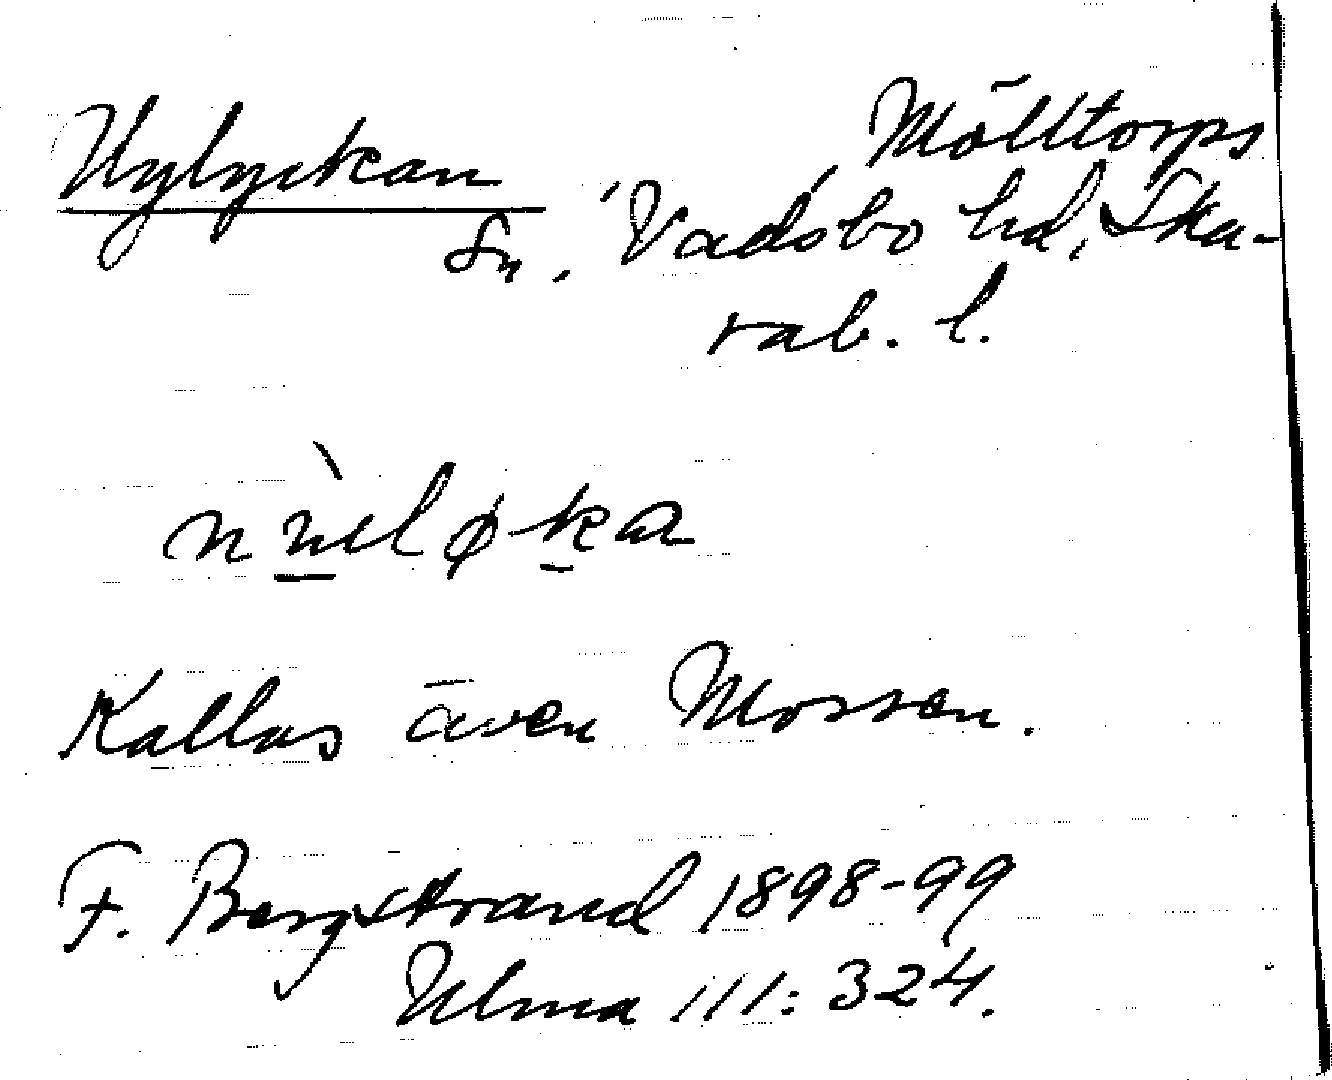 Nylyckan
Mölltorps
Sn, Vadsbo hd, Ska-
rab. l.
Kallas även Mossen.
F. Bergstrand 1898-99
Ulma 111:324.